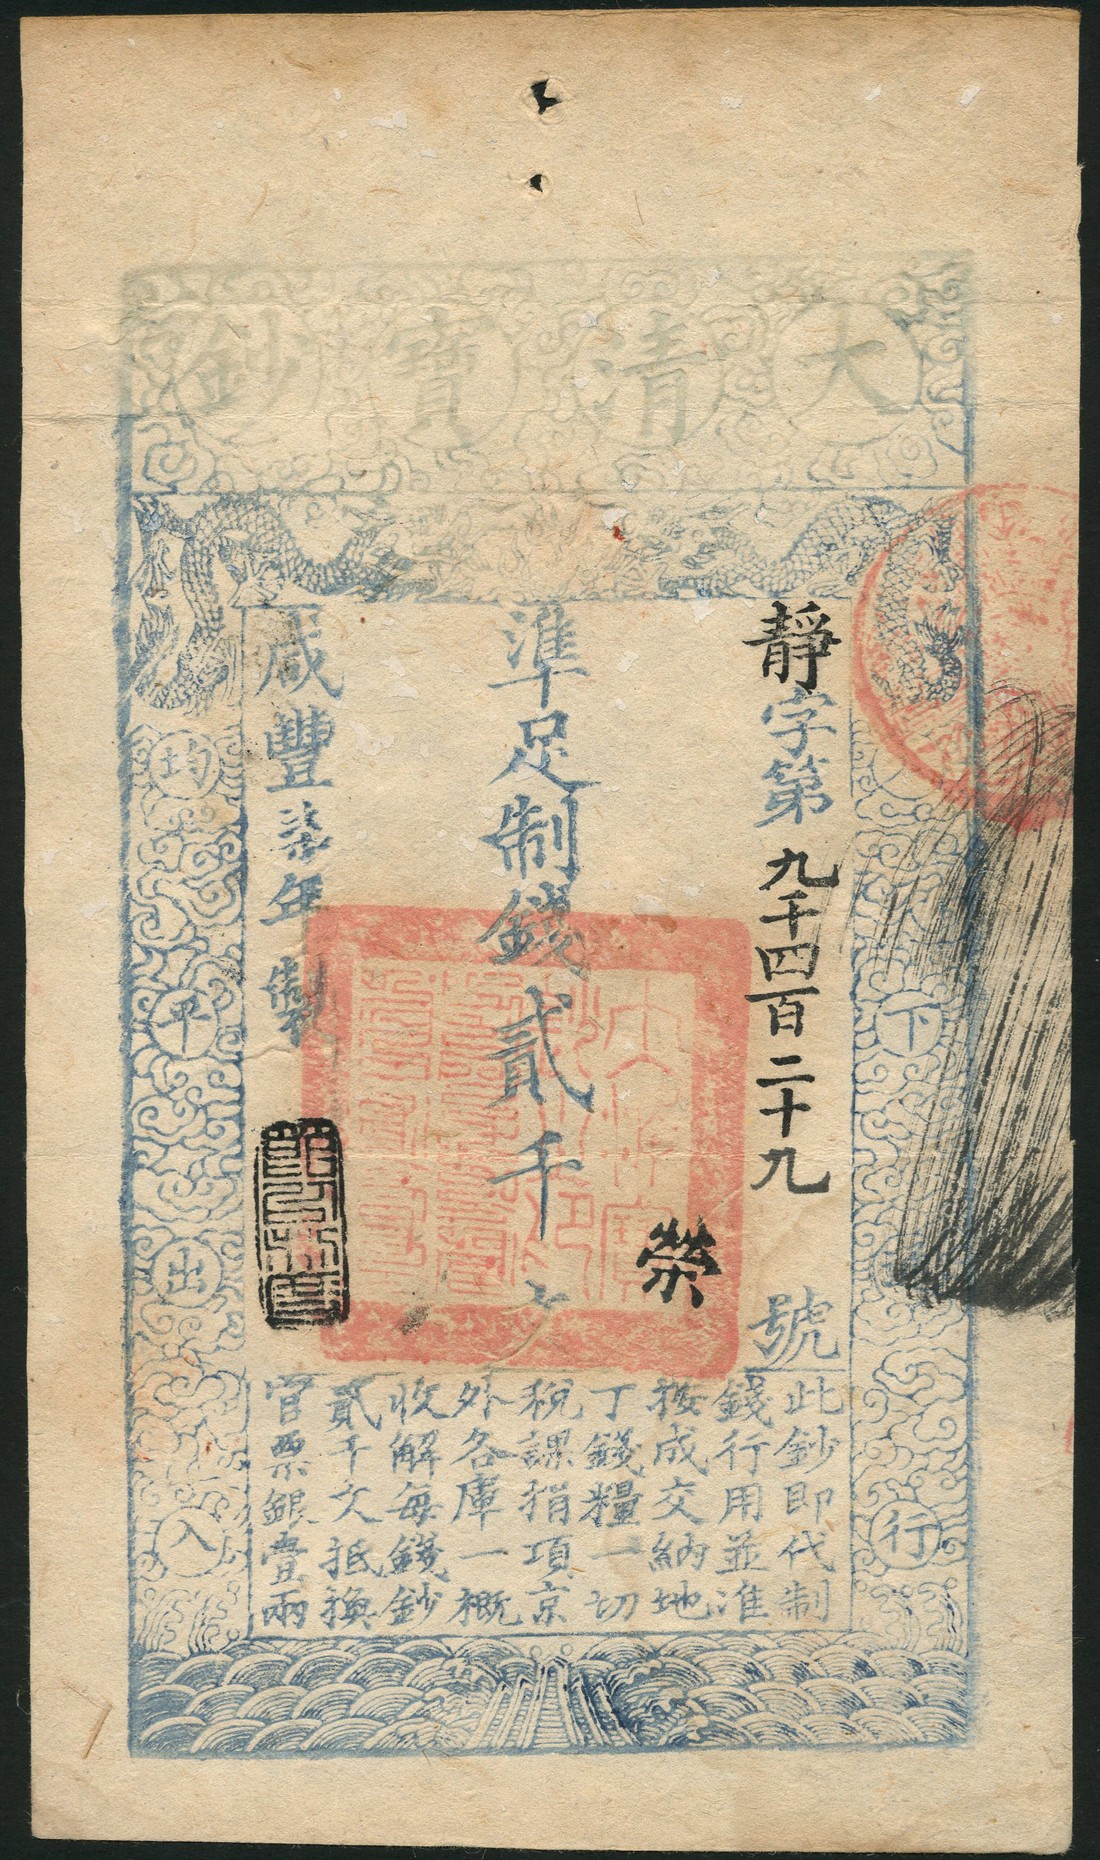 大清寶鈔
靜字第九千四百二十九號
準足制錢貳千文
咸豐柒年製
天下
行
均平出入
榮
此鈔即代制
錢行用並準
按成交納地
丁錢糧一切
稅課捐項京
外各庫一概
收解每錢鈔
貳千文抵換
官票銀壹兩